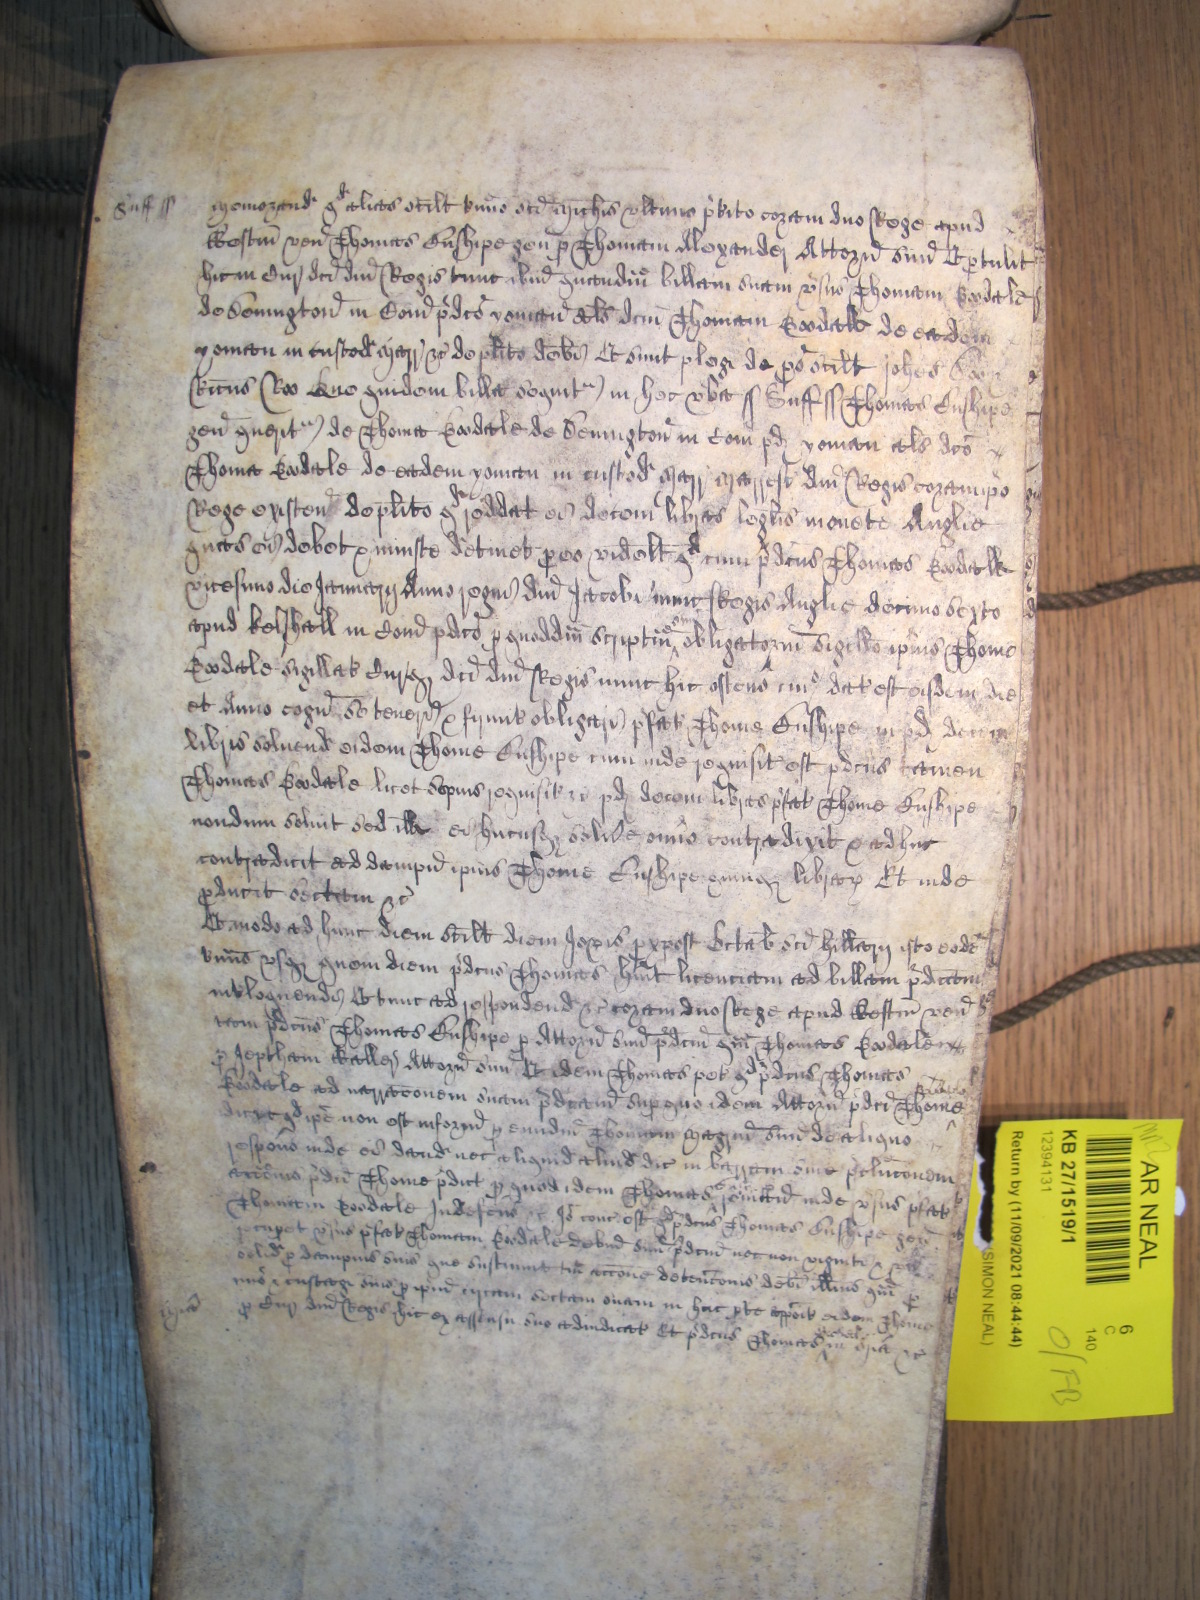 Suff ss Memorand qd alias scilt t'mino sci Michis ultimo p'tito coram dno Rege apud
Westm ven Thomas Cushipe gen p Thomam Alexander Attorn suu Et p'tulit
hic in Cur dci dni Regis tunc ibm quandam billam suam v'sus Thomam Goodale
de Semington in Com p'dco yoman als dcm Thomam Goodale de eadem
yoman in custod Marr &c de plito debi Et sunt pleg de pros scilt Johes Doo
Ricus Roo Que quidem billa sequit in hec v'ba ss Suff ss Thomas Cushipe
gen querit de Thoma Goodale de Semington in Com pd yoman als dco
Thoma Goodale de eadem yoman in custod Marr Marresc dni Regis coram ipo
Rege existen de plito qd reddat ei decem libras leglis monete Anglie
quas ei debet & iniuste detinet p eo videlt qd cum p'dcus Thomas Goodale
vicesimo die Januarij Anno regni dni Jacobi nunc Regis Anglie decimo sexto
apud Kelshall in Com pdco p quoddam scriptu suu obligatorm sigillo ipius Thome
Goodale sigillat Curq dci dni Regis nunc hic ostens cui dat est eisdem die
et Anno cogn se teneri & firmit obligari p'fat Thome Cushipe in pd decem
libris solvend eidem Thome Cushipe cum inde requisit esset p'dcus tamen
Thomas Goodale licet sepius requisit &c pd decem libras p'fat Thome Cushipe
nondum solvit sed ill ei hucusq solvere omino contradixit & adhuc
contradicit ad dampn ipius Thome Cushipe quinq librar Et inde
p'ducit sectam &c
Et modo ad hunc diem scilt diem Jovis px post Octab sci Hillarij isto eodm
t'mino usq quem diem p'dcus Thomas huit licenciam ad billam p'dictam
int'loquendi Et tunc ad respondend &c coram dno Rege apud Westm ven
tam p'dcus Thomas Cushipe p Attorn suu p'dcm qm Thomas Goodale
p Jeptham Waller Attorn suu Et idem Thomas pet qd p'dcus Thomas
Goodale ad narraconem suam p'dictam Sup quo idem Attorn p'dci Thome Goodale
dicit qd ipe non est informat p eundm Thomam Magrm suu de aliquo
respons inde ei dand nec aliquid aliud dic in barram sive p'clucionem
accois p'di Thome p'dict p quod idem Thomas remanet inde v'sus p'fat
Thomam Goodale Indefens &c Io cons est qd p'dcus Thomas Cushipe gen
recupet v'sus p'fat Thomam Goodale debm suu p'dcm necnon viginti &
solid p dampnis suis que sustinuit tam occone detencionis debi illius qm p
mis & custag suis p ipm circa sectam suam in hac pte apposit eidem Thome
p Cur dni Regis hic ex assensu suo adiudicat Et p'dcus Thomas Goodale in mia &c
mia
AR NEAL
KB 27/1519/1
12394131
Return by (11/09/2021 08:44:44)
(SIMON NEAL)
6
C
140
O/FB